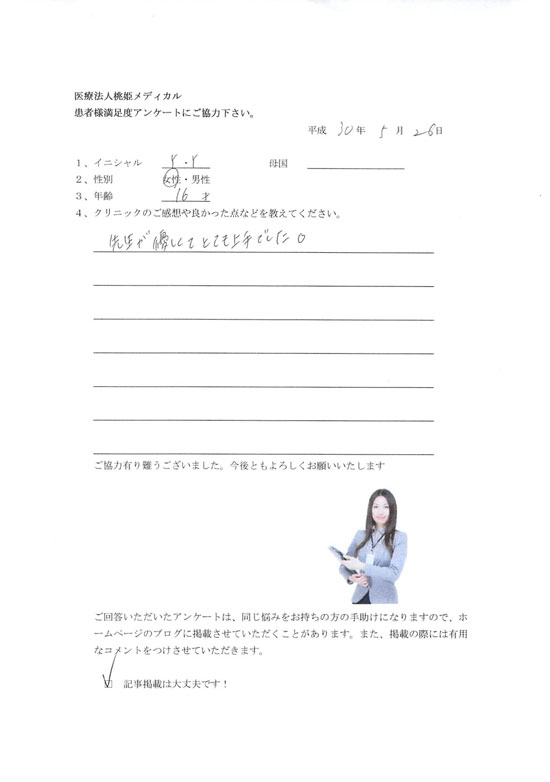 医療法人桃姫メディカル
患者様満足度アンケートにご協力下さい。
平成 30年 5月 26日
1、イニシャル Y・Y 母国
2、性別 女性・男性
3、年齢 16才
4、クリニックのご感想や良かった点などを教えてください。
先生が優しくてとても上手でした。
ご協力有り難うございました。今後ともよろしくお願いいたします
ご回答いただいたアンケートは、同じ悩みをお持ちの方の手助けになりますので、ホ
ームページのブログに掲載させていただくことがあります。また、掲載の際には有用
なコメントをつけさせていただきます。
☑ 記事掲載は大丈夫です！